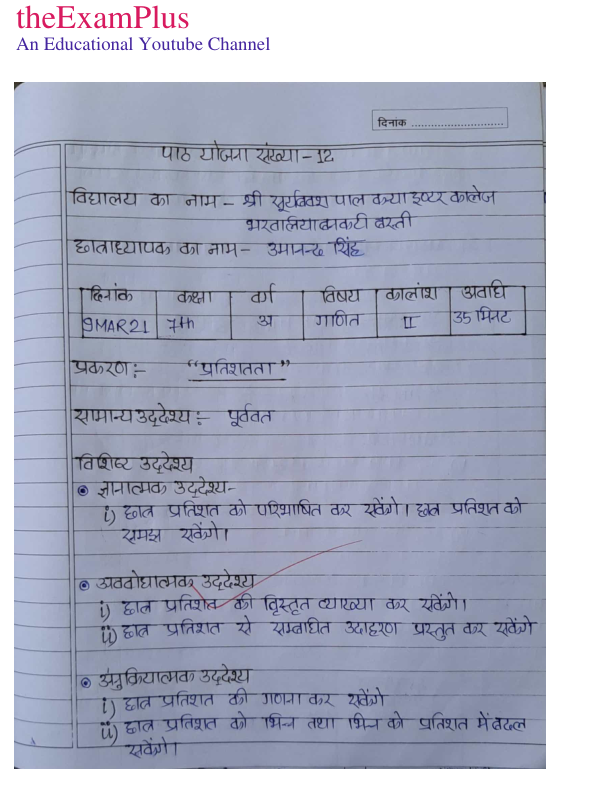 theExamPlus
An Educational Youtube Channel
दिनांक ..............................
पाठ योजना संख्या - 12
विद्यालय का नाम - श्री सूर्यबक्श पाल कन्या इण्टर कालेज
बस्ती
छात्राध्यापक का नाम - उमानन्द सिंह
दिनांक कक्षा वर्ग विषय कालांश अवधि
9MAR21 7th अ गणित II 35 मिनट
प्रकरण :- "प्रतिशतता"
सामान्य उद्देश्य :- पूर्ववत
विशिष्ट उद्देश्य
ज्ञानात्मक उद्देश्य-
i) छात्र प्रतिशत को परिभाषित कर सकेंगे। छात्र प्रतिशत को
समझ सकेंगे।
अवबोधात्मक उद्देश्य
i) छात्र प्रतिशत की विस्तृत व्याख्या कर सकेंगे।
ii) छात्र प्रतिशत से सम्बाधित उदाहरण प्रस्तुत कर सकेंगे
अनुक्रियात्मक उद्देश्य
i) छात्र प्रतिशत की गणना कर सकेंगे
ii) छात्र प्रतिशत को भिन्न तथा भिन्न को प्रतिशत में बदल
सकेंगे।